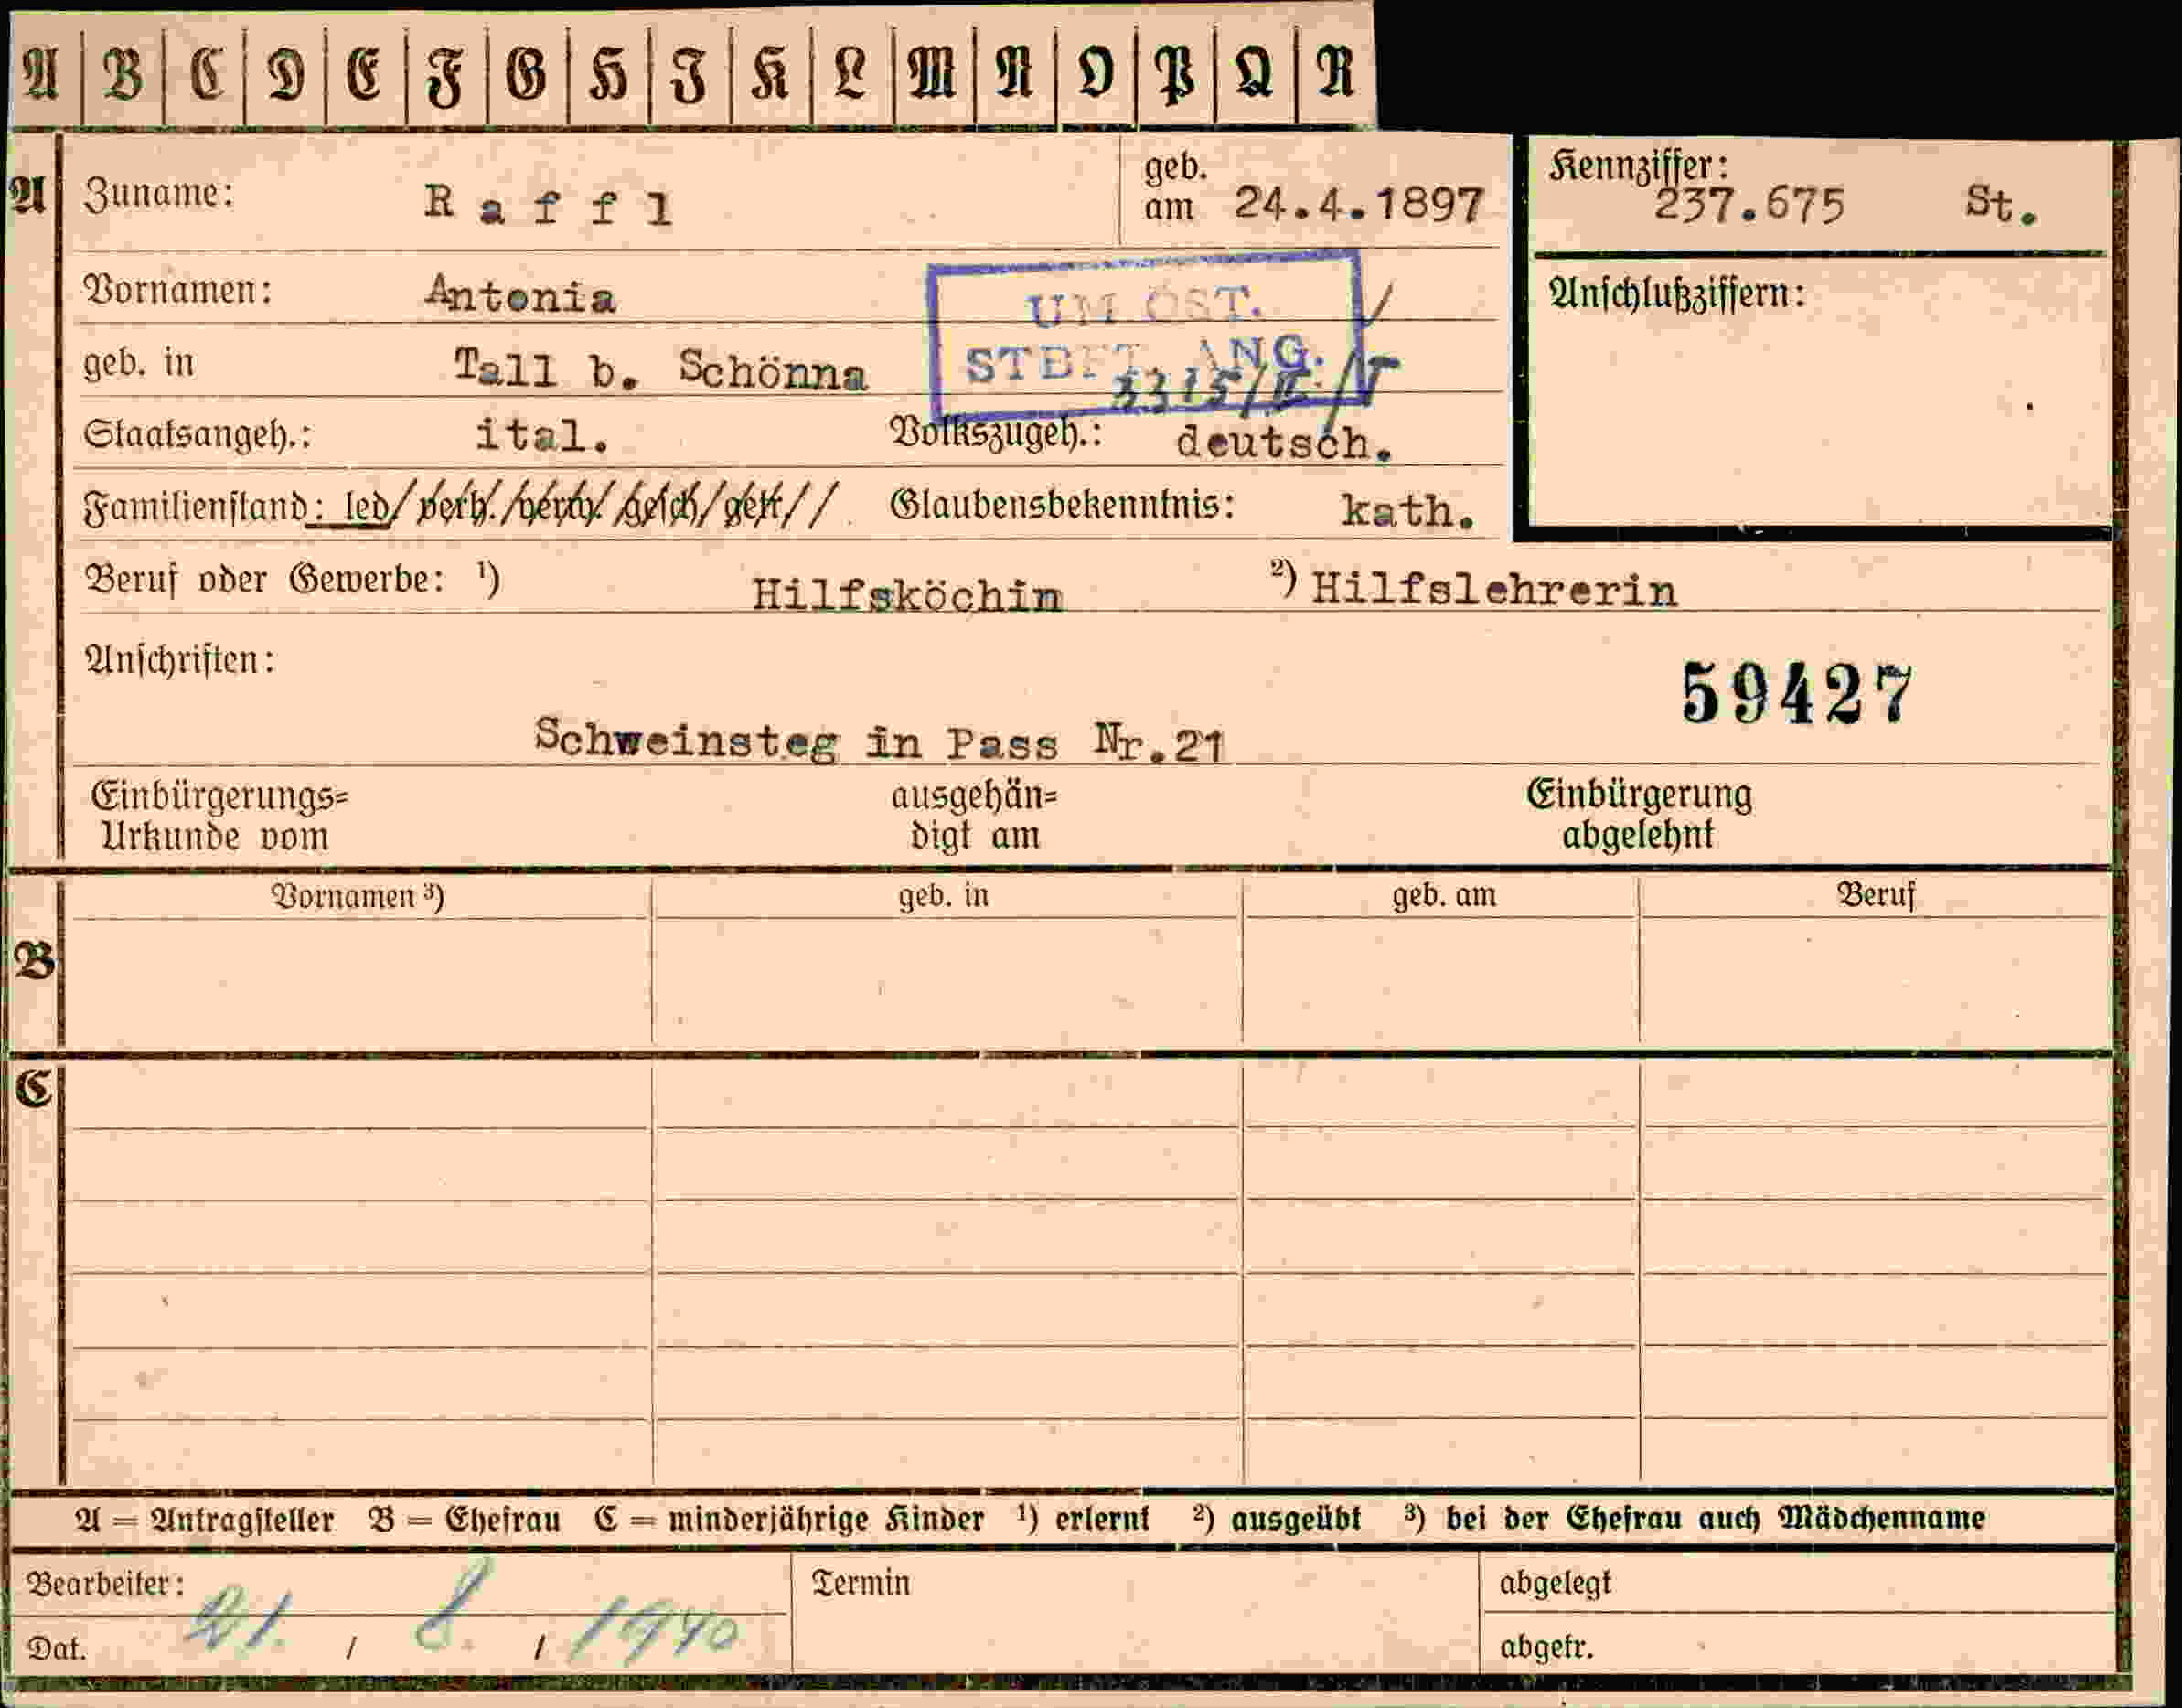 A B C D E F G H J K L M N O P Q R
A Zuname: Raffl geb. am 24.4.1897 Kennziffer: 237.675 St.
Vornamen: Antonia UM.ÖST. Anschlußziffern:
geb. in Tall b. Schönna STBFT. ANG.
Staatsangeh.: ital. Volkszugeh.: deutsch.
Familienstand: led/verh./verw./gesch/getr// Glaubensbekenntnis: kath.
Beruf oder Gewerbe: ¹) Hilfsköchin ²) Hilfslehrerin
Anschriften:
59427
Schweinsteg in Pass Nr.21
Einbürgerungs= ausgehän= Einbürgerung
Urkunde vom digt am abgelehnt
Vornamen ³) geb. in geb. am Beruf
B
C
A = Antragsteller B = Ehefrau C = minderjährige Kinder ¹) erlernt ²) ausgeübt ³) bei der Ehefrau auch Mädchenname
Bearbeiter: Termin abgelegt
Dat. 21. / 8. / 1940 abgetr.